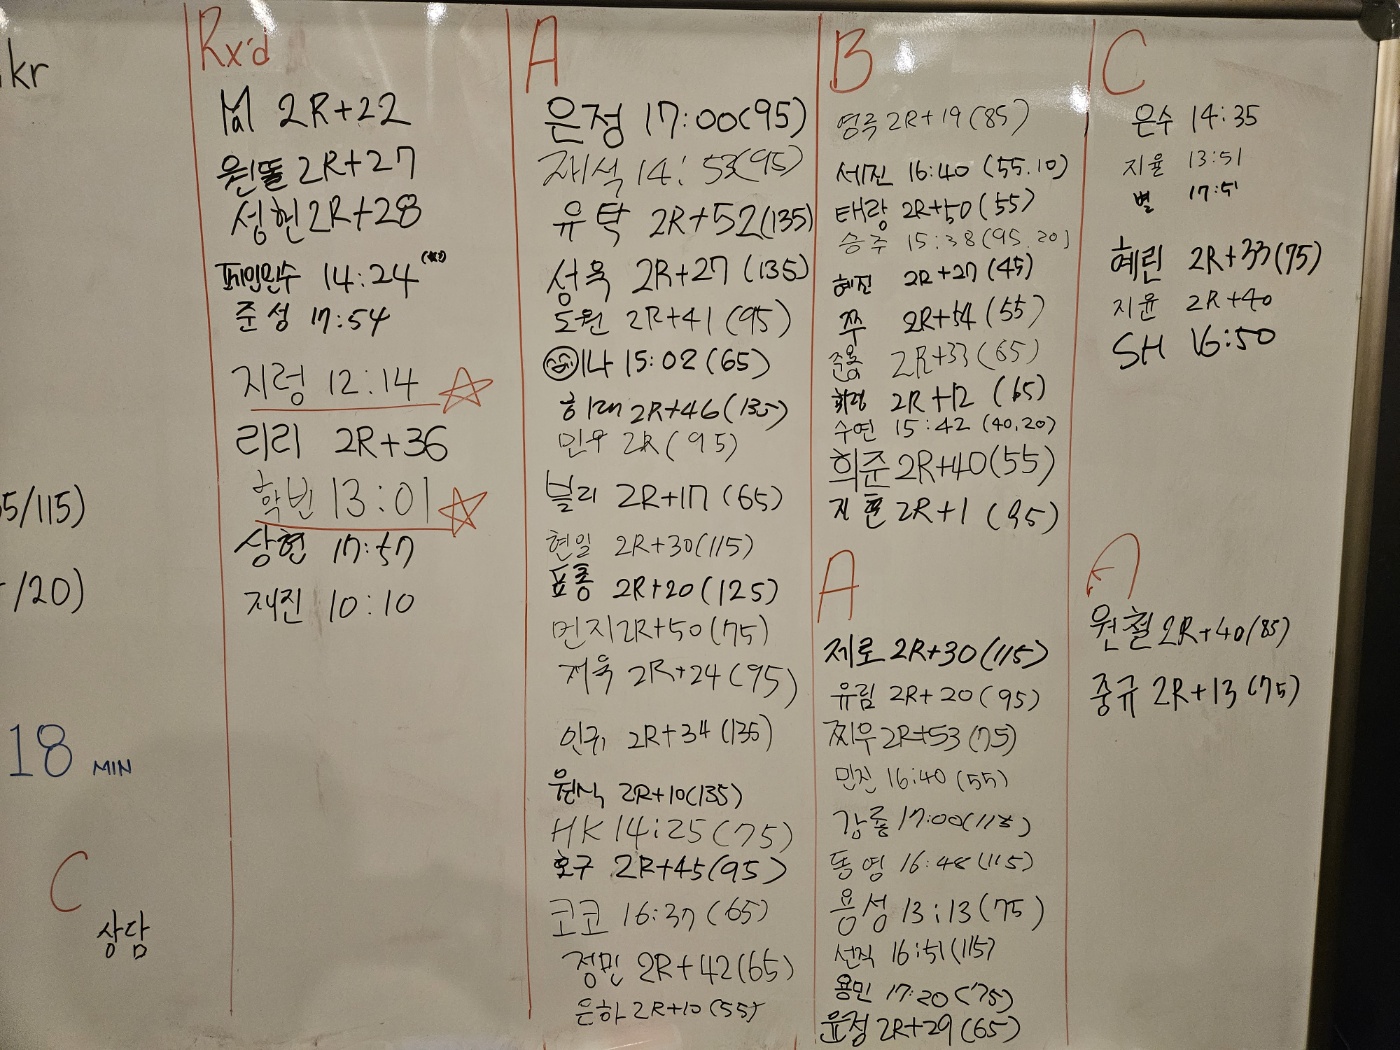 kr
5/115)
/20)
18 MIN
C
상담
Rx'd
2R+22
원똘 2R+27
성헌 2R+28
페인원수 14:24
준성 17:54
지렁 12:14
리리 2R+36
학빈 13:01
상현 17:57
재진 10:10
A
은정 17:00(95)
재석 14:53(95)
유탁 2R+52(135)
성욱 2R+27(135)
도원 2R+41(95)
이나 15:02(65)
히래 2R+46(135)
민우 2R(95)
블리 2R+17(65)
현일 2R+30(115)
표롱 2R+20(125)
먼지 2R+50(75)
저욱 2R+24(95)
인귀 2R+34(135)
원식 2R+10(135)
HK 14:25(75)
호구 2R+45(95)
코코 16:37(65)
정민 2R+42(65)
은하 2R+10(55)
B
영주 2R+19(85)
세진 16:40(55.10)
태랑 2R+50(55)
승주 15:38(95.20)
혜진 2R+27(45)
쭈 2R+54(55)
준용 2R+33(65)
2R+12(65)
수연 15:42(40,20)
희준 2R+40(55)
지훈 2R+1(95)
A
제로 2R+30(115)
유림 2R+20(95)
찌우 2R+53(75)
민진 16:40(55)
강룡 17:00(115)
동영 16:48(115)
용성 13:13(75)
선직 16:51(115)
용민 17:20(75)
윤정 2R+29(65)
C
은수 14:35
지율 13:51
별 17:51
혜린 2R+33(75)
지윤 2R+40
SH 16:50
A
원철 2R+40(85)
중규 2R+13(75)